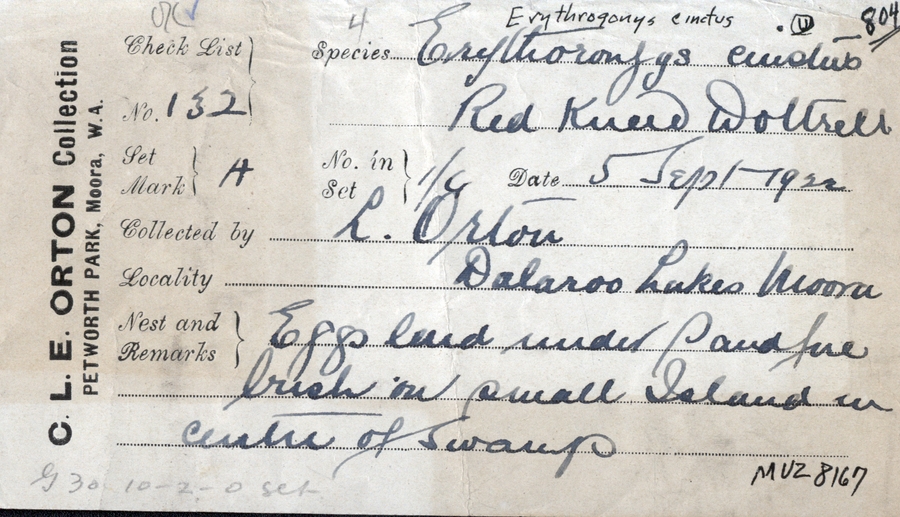 Erythrogonys cinctus . U 804
4
Check List
Species Erythorongys cinctus
No. 132
Red Kneed Dottrell
Set Mark A
No. in Set 1/4
Date 5 Sept 1922
Collected by L. Orton
Locality Dalaroo Lakes Moora
Nest and Remarks Eggs laid under
bush on small Island in
centre of Swamp
MUZ 8167
G 30 10-2-0 set
C. L. E. ORTON Collection
PETWORTH PARK, Moora, W.A.